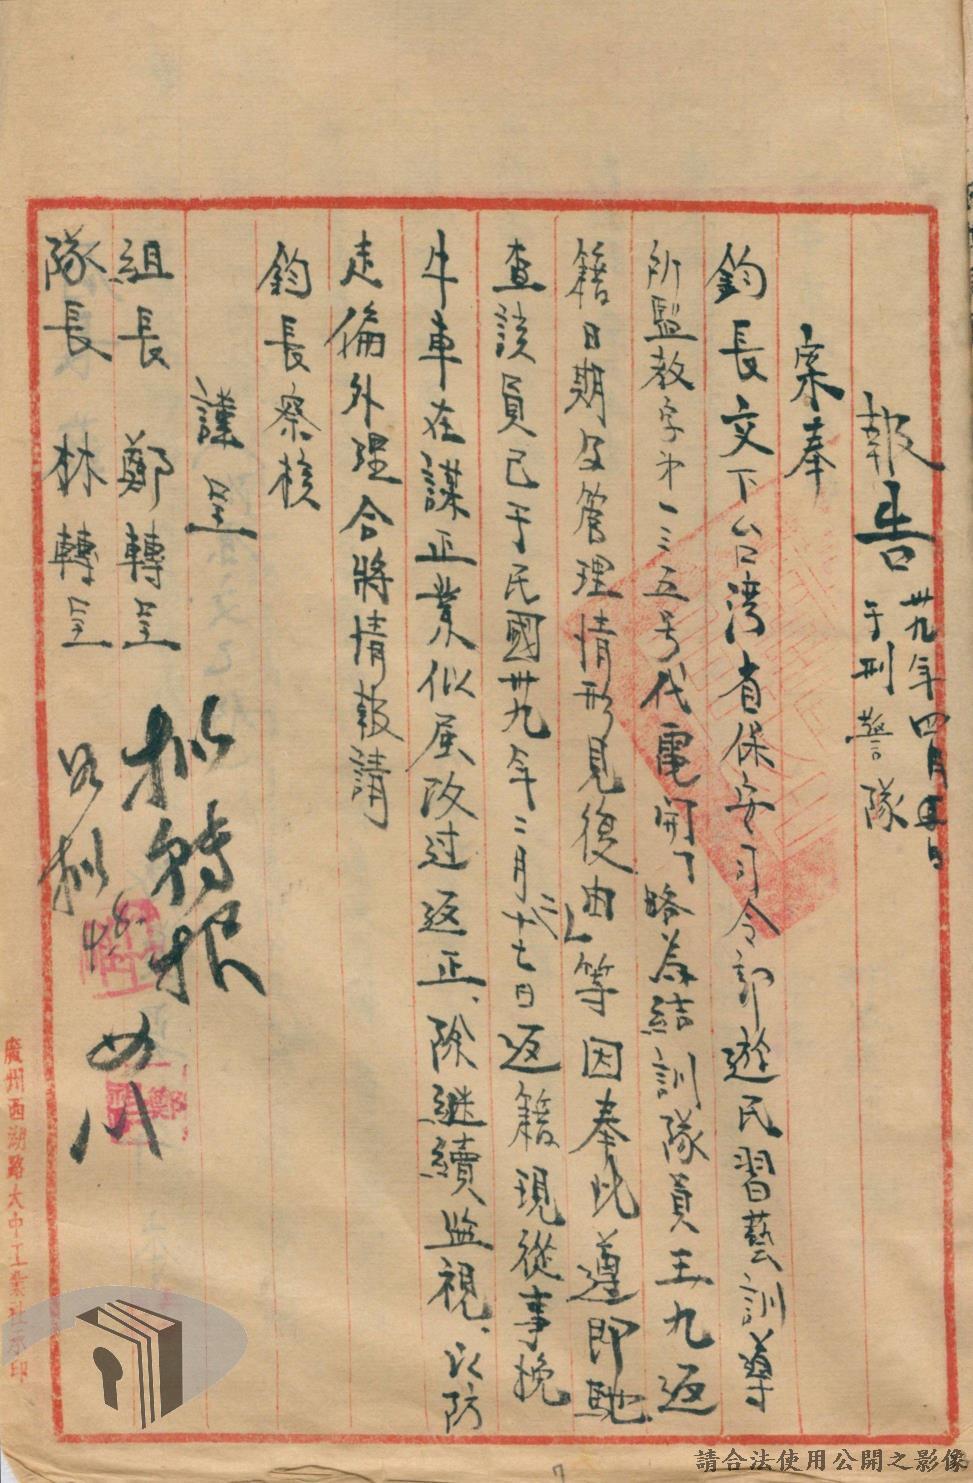 報告 卅九年四月五日
于刑警隊
案奉
鈞長交下台湾省保安司令部遊民習藝訓導
所監教字第一三五号代電開「略為結訓隊員王九返
籍日期及管理情形見復由」等因奉此遵即馳
查該員已于民國卅九年二月十七日返籍現從事挽
牛車在謀正業似屬改过返正、除継續監視、以防
走偏外理合將情報請
鈞長察核
謹呈
組長 鄭轉呈
隊長 林轉呈
擬轉報
如擬
廣州西湖路大中工業社承印
請合法使用公開之影像